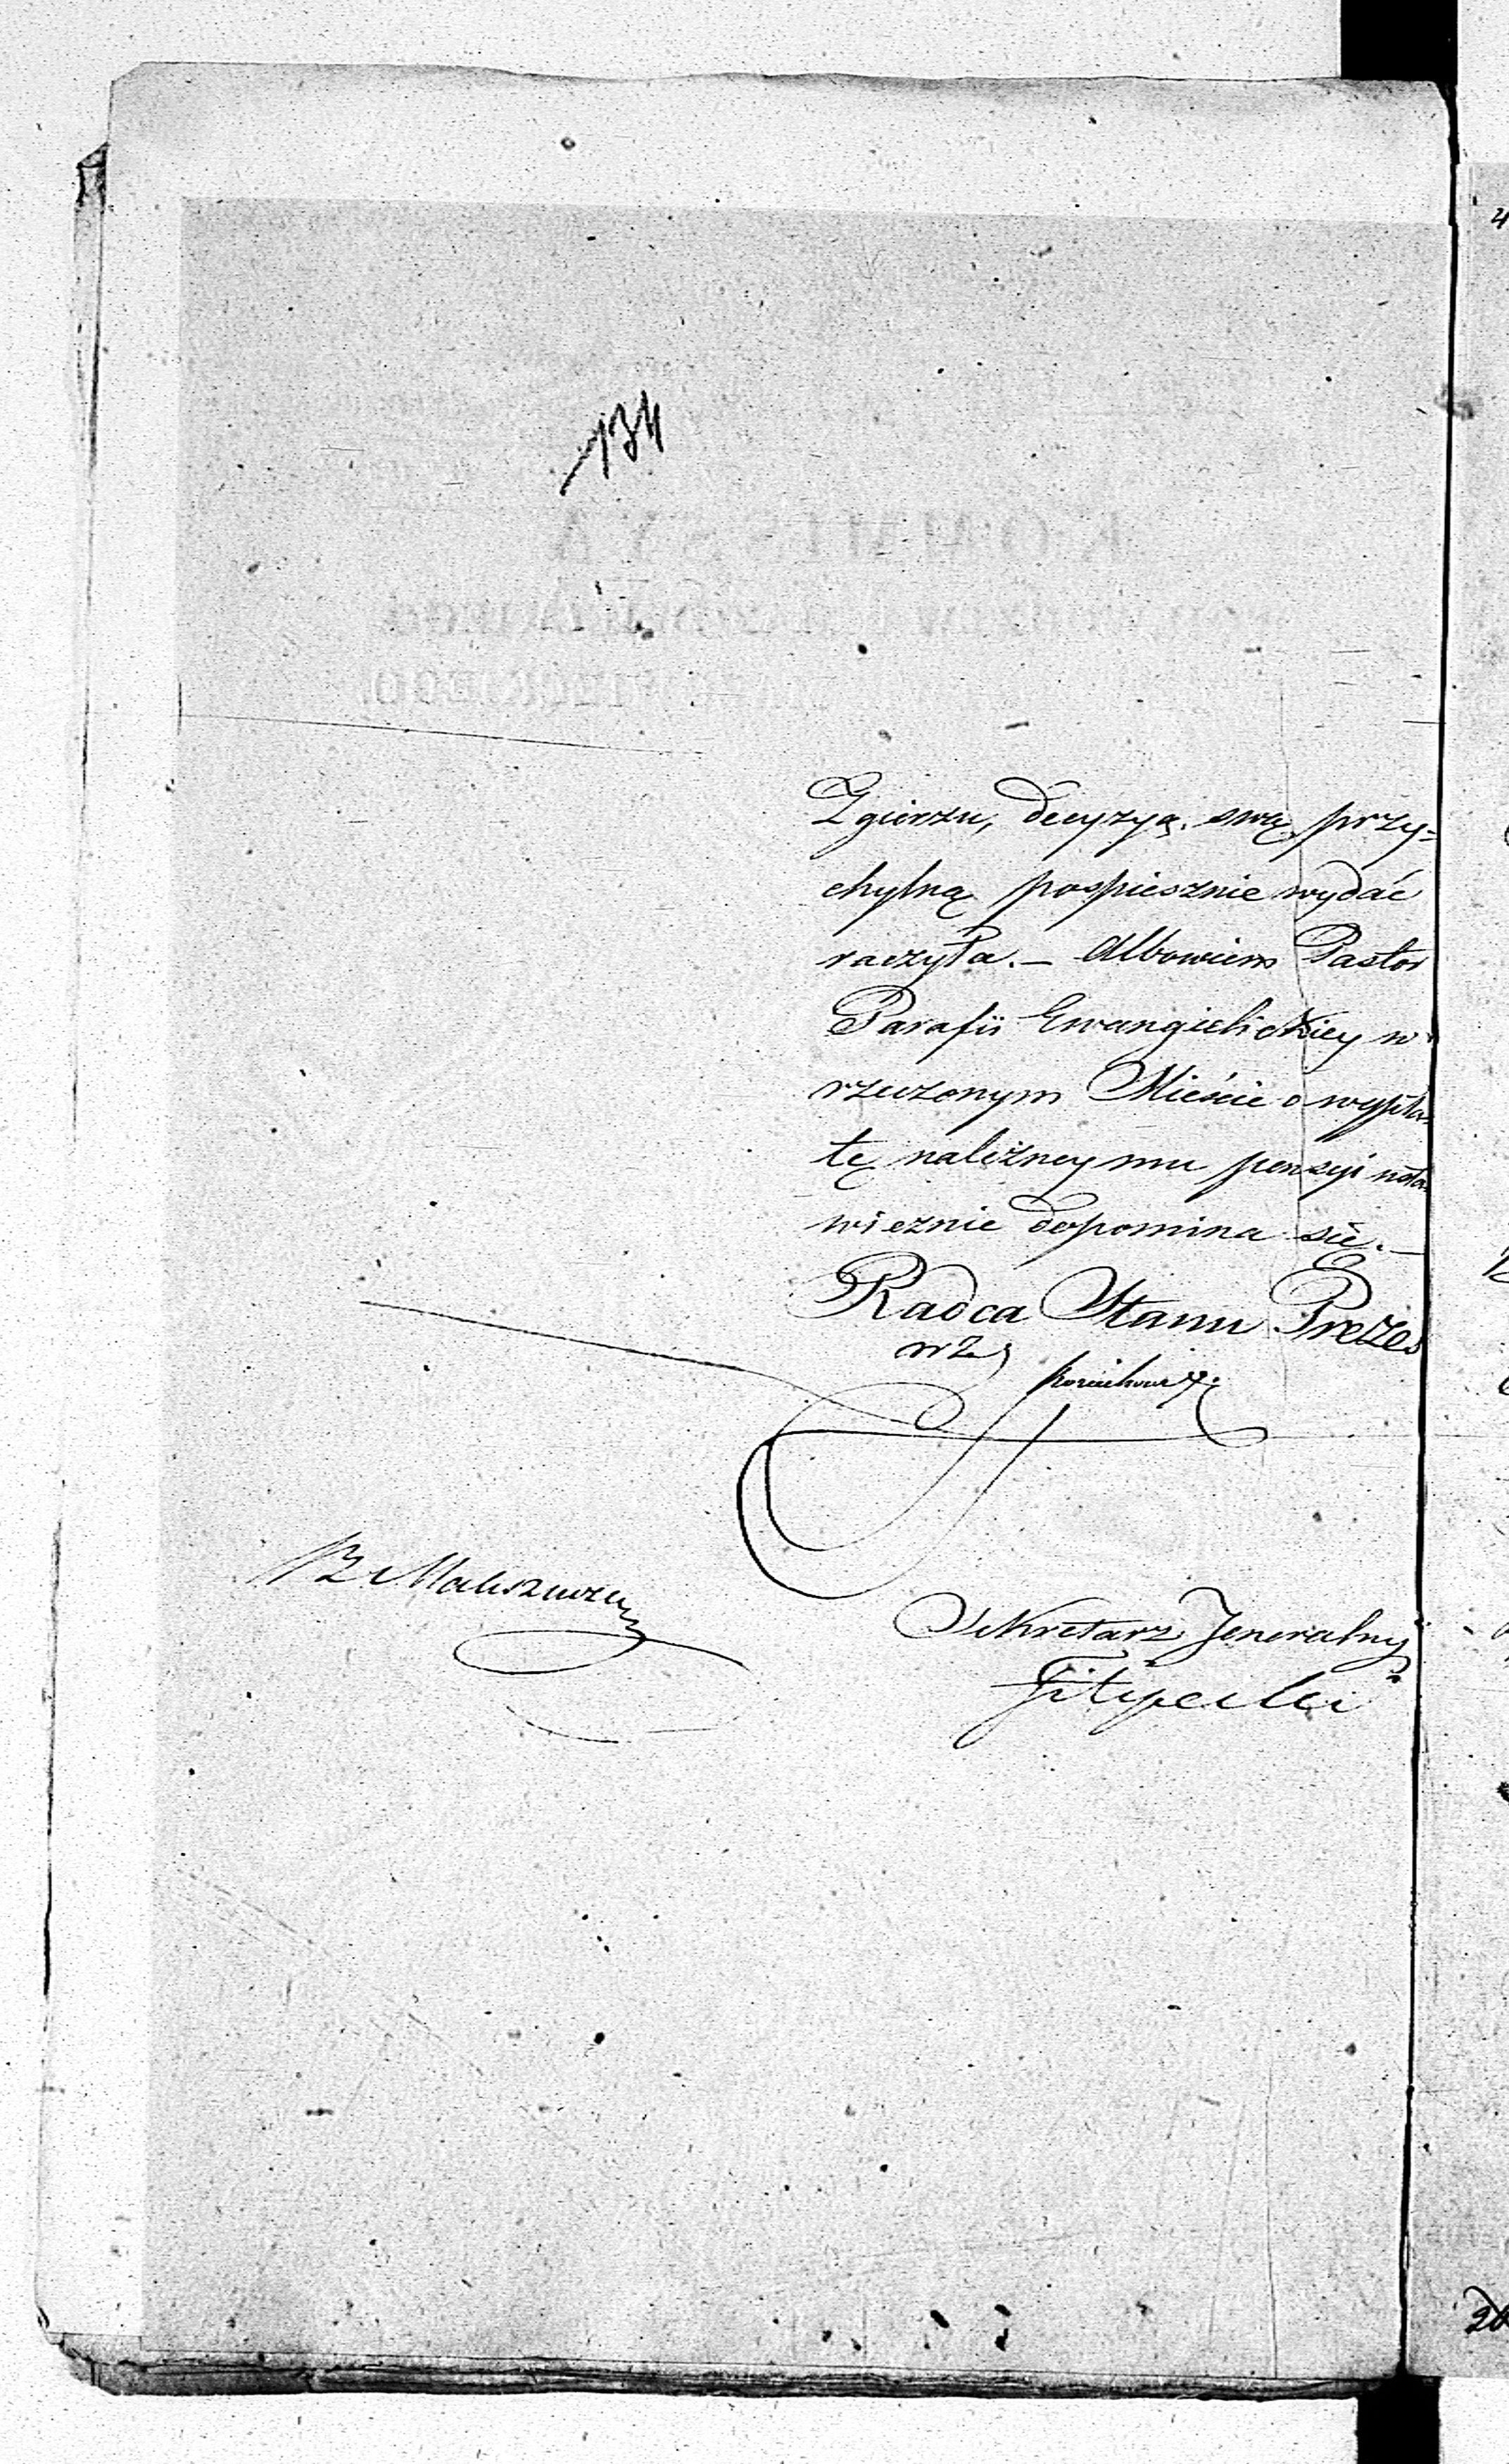 134
Zgierzu, decyzyą swą przy=
chylną pospiesznie wydać
raczyła. — Albowiem Pastor
Parafii Ewangielickiey w
rzeczonym Mieście o wypła=
tę należney mu pensyi usta=
wicznie dopomina się. —
Radca Stanu Prezes
wz
Sekretarz Jeneralny
Filipecki